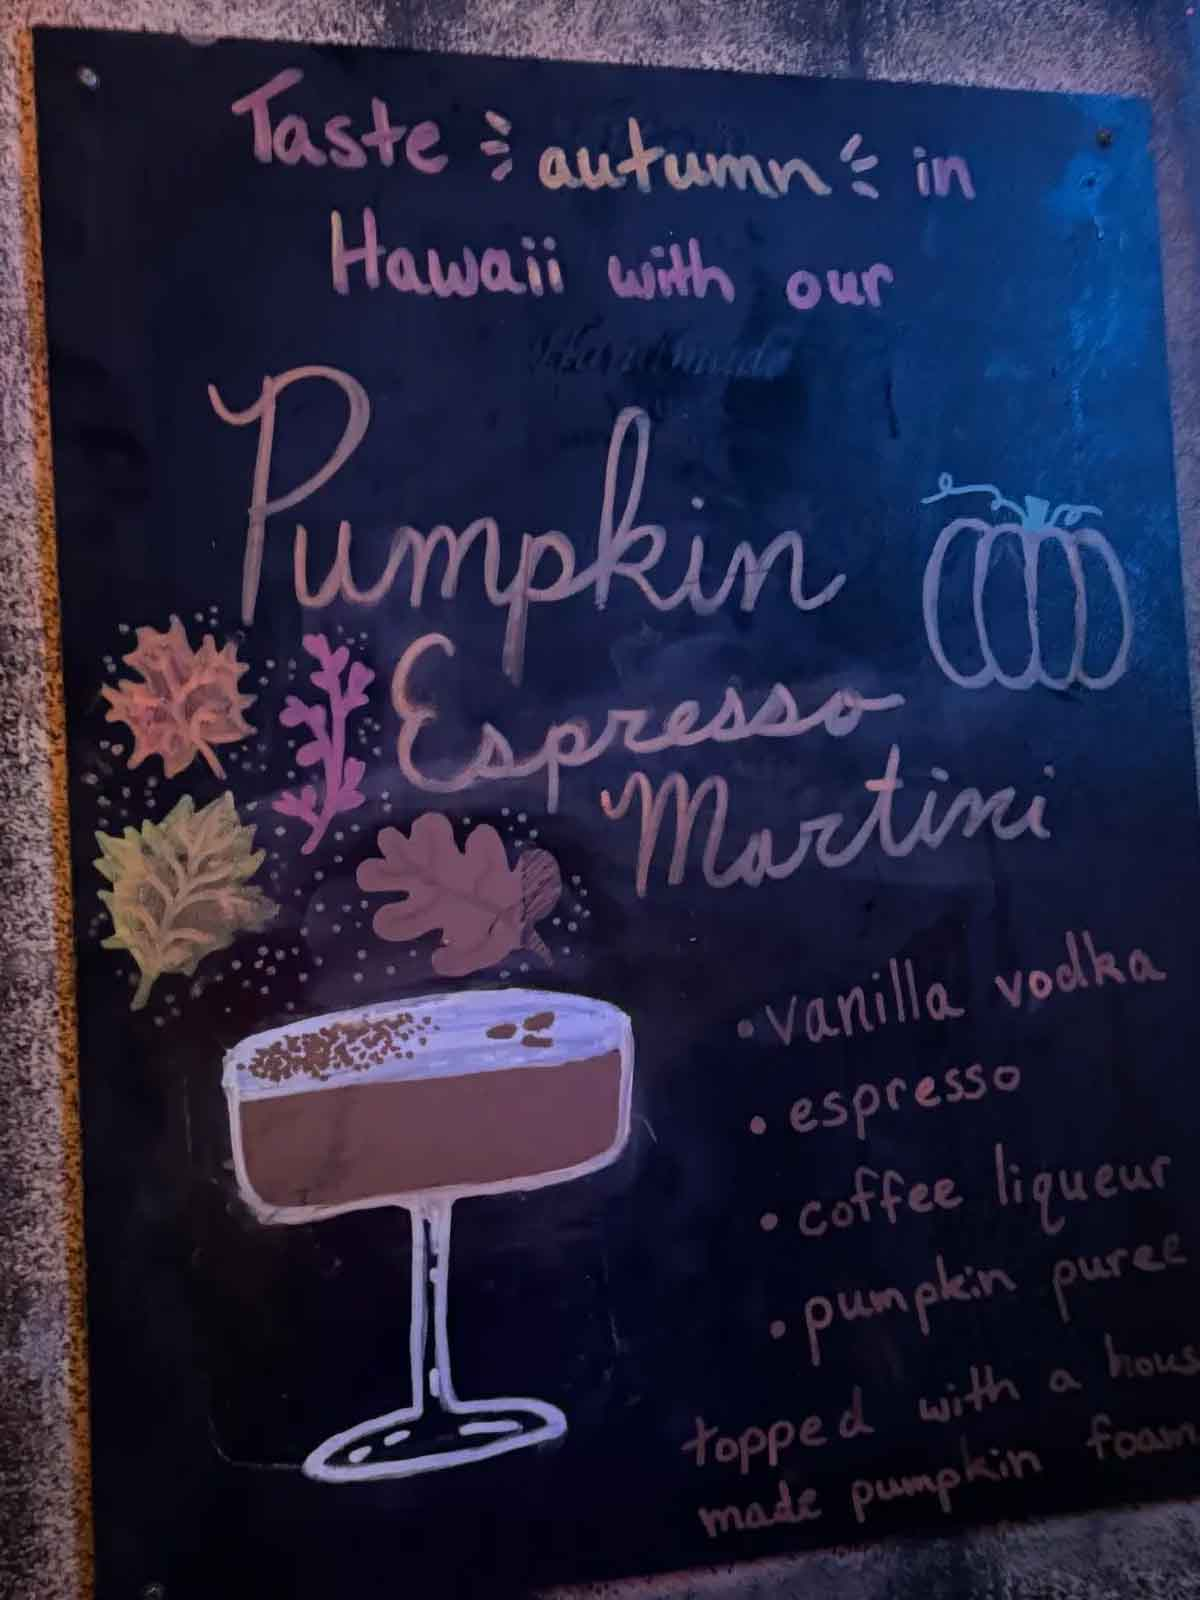 Taste autumn in
Hawaii with our
Pumpkin
Espresso
Martini
• vanilla vodka
• espresso
• coffee liqueur
• pumpkin puree
topped with a hous
made pumpkin foam